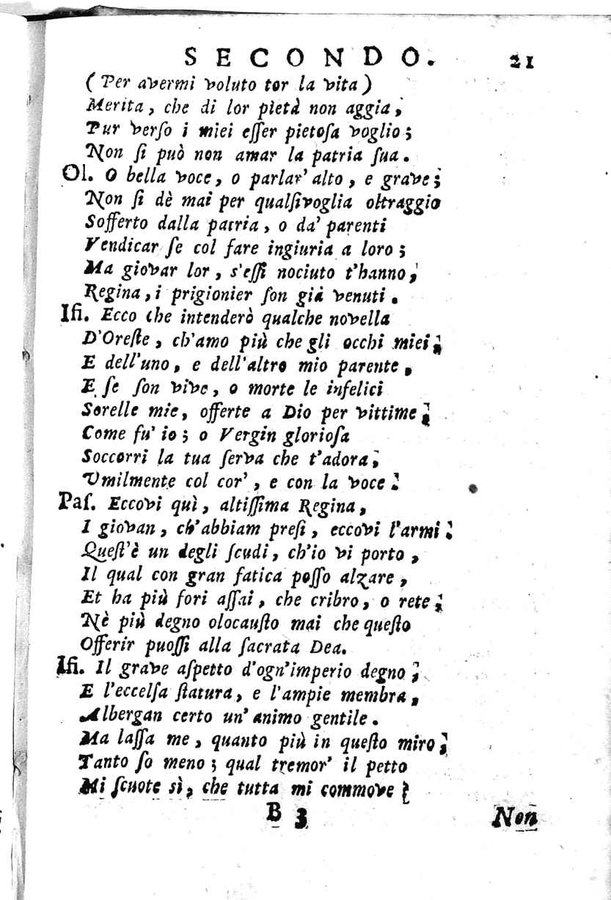 SECONDO. 21
(Per avermi voluto tor la vita)
Merita, che di lor pietà non aggia,
Pur verso i miei eſſer pietoſa voglio;
Non ſi può non amar la patria ſua.
Ol. O bella voce, o parlar' alto, e grave;
Non ſi dè mai per qualſivoglia oltraggio
Sofferto dalla patria, o da' parenti
Vendicar ſe col fare ingiuria a loro;
Ma giovar lor, s'eſſi nociuto t'hanno,
Regina, i prigionier ſon già venuti.
Iſi. Ecco che intenderò qualche novella
D'Oreſte, ch'amo più che gli occhi miei;
E dell'uno, e dell'altro mio parente,
E ſe ſon vive, o morte le infelici
Sorelle mie, offerte a Dio per vittime;
Come fu' io; o Vergin glorioſa
Soccorri la tua ſerva che t'adora,
Umilmente col cor', e con la voce.
Paſ. Eccovi quì, altiſſima Regina,
I giovan, ch'abbiam preſi, eccovi l'armi.
Queſt'è un degli ſcudi, ch'io vi porto,
Il qual con gran fatica poſſo alzare,
Et ha più fori aſſai, che cribro, o rete;
Nè più degno olocauſto mai che queſto
Offerir puoſſi alla ſacrata Dea.
Iſi. Il grave aſpetto d'ogn'imperio degno;
E l'eccelſa ſtatura, e l'ampie membra,
Albergan certo un' animo gentile.
Ma laſſa me, quanto più in queſto miro;
Tanto ſo meno; qual tremor' il petto
Mi ſcuote sì, che tutta mi commove?
B 3 Non